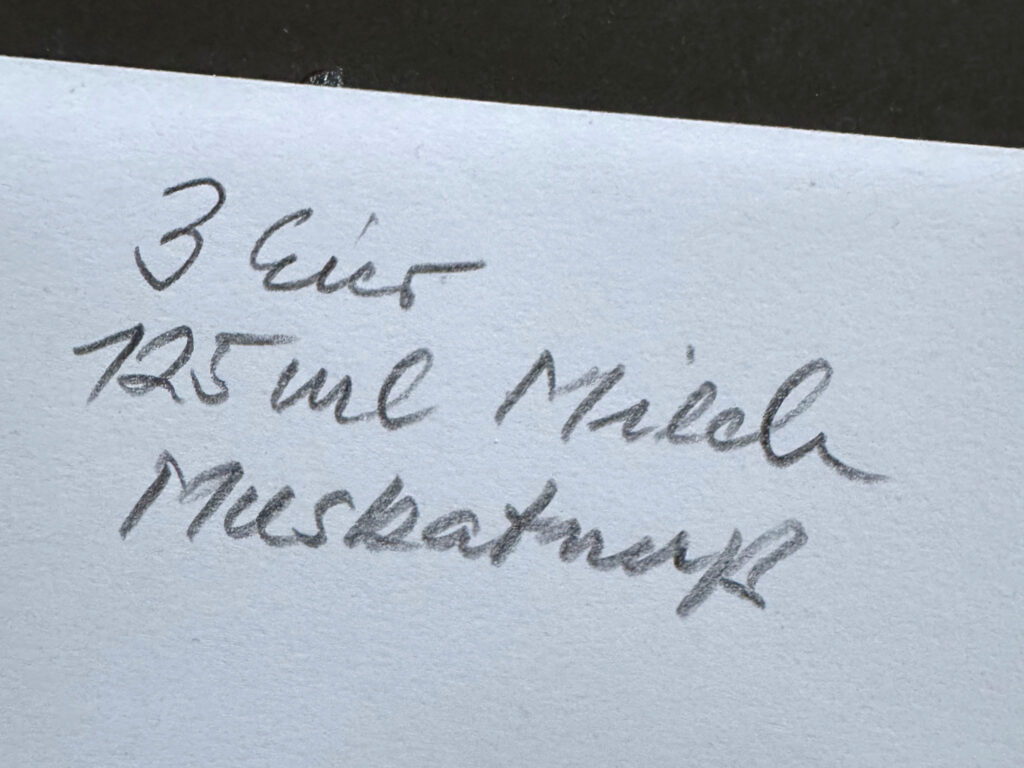 3 Eier
125 ml Milch
Muskatnuß